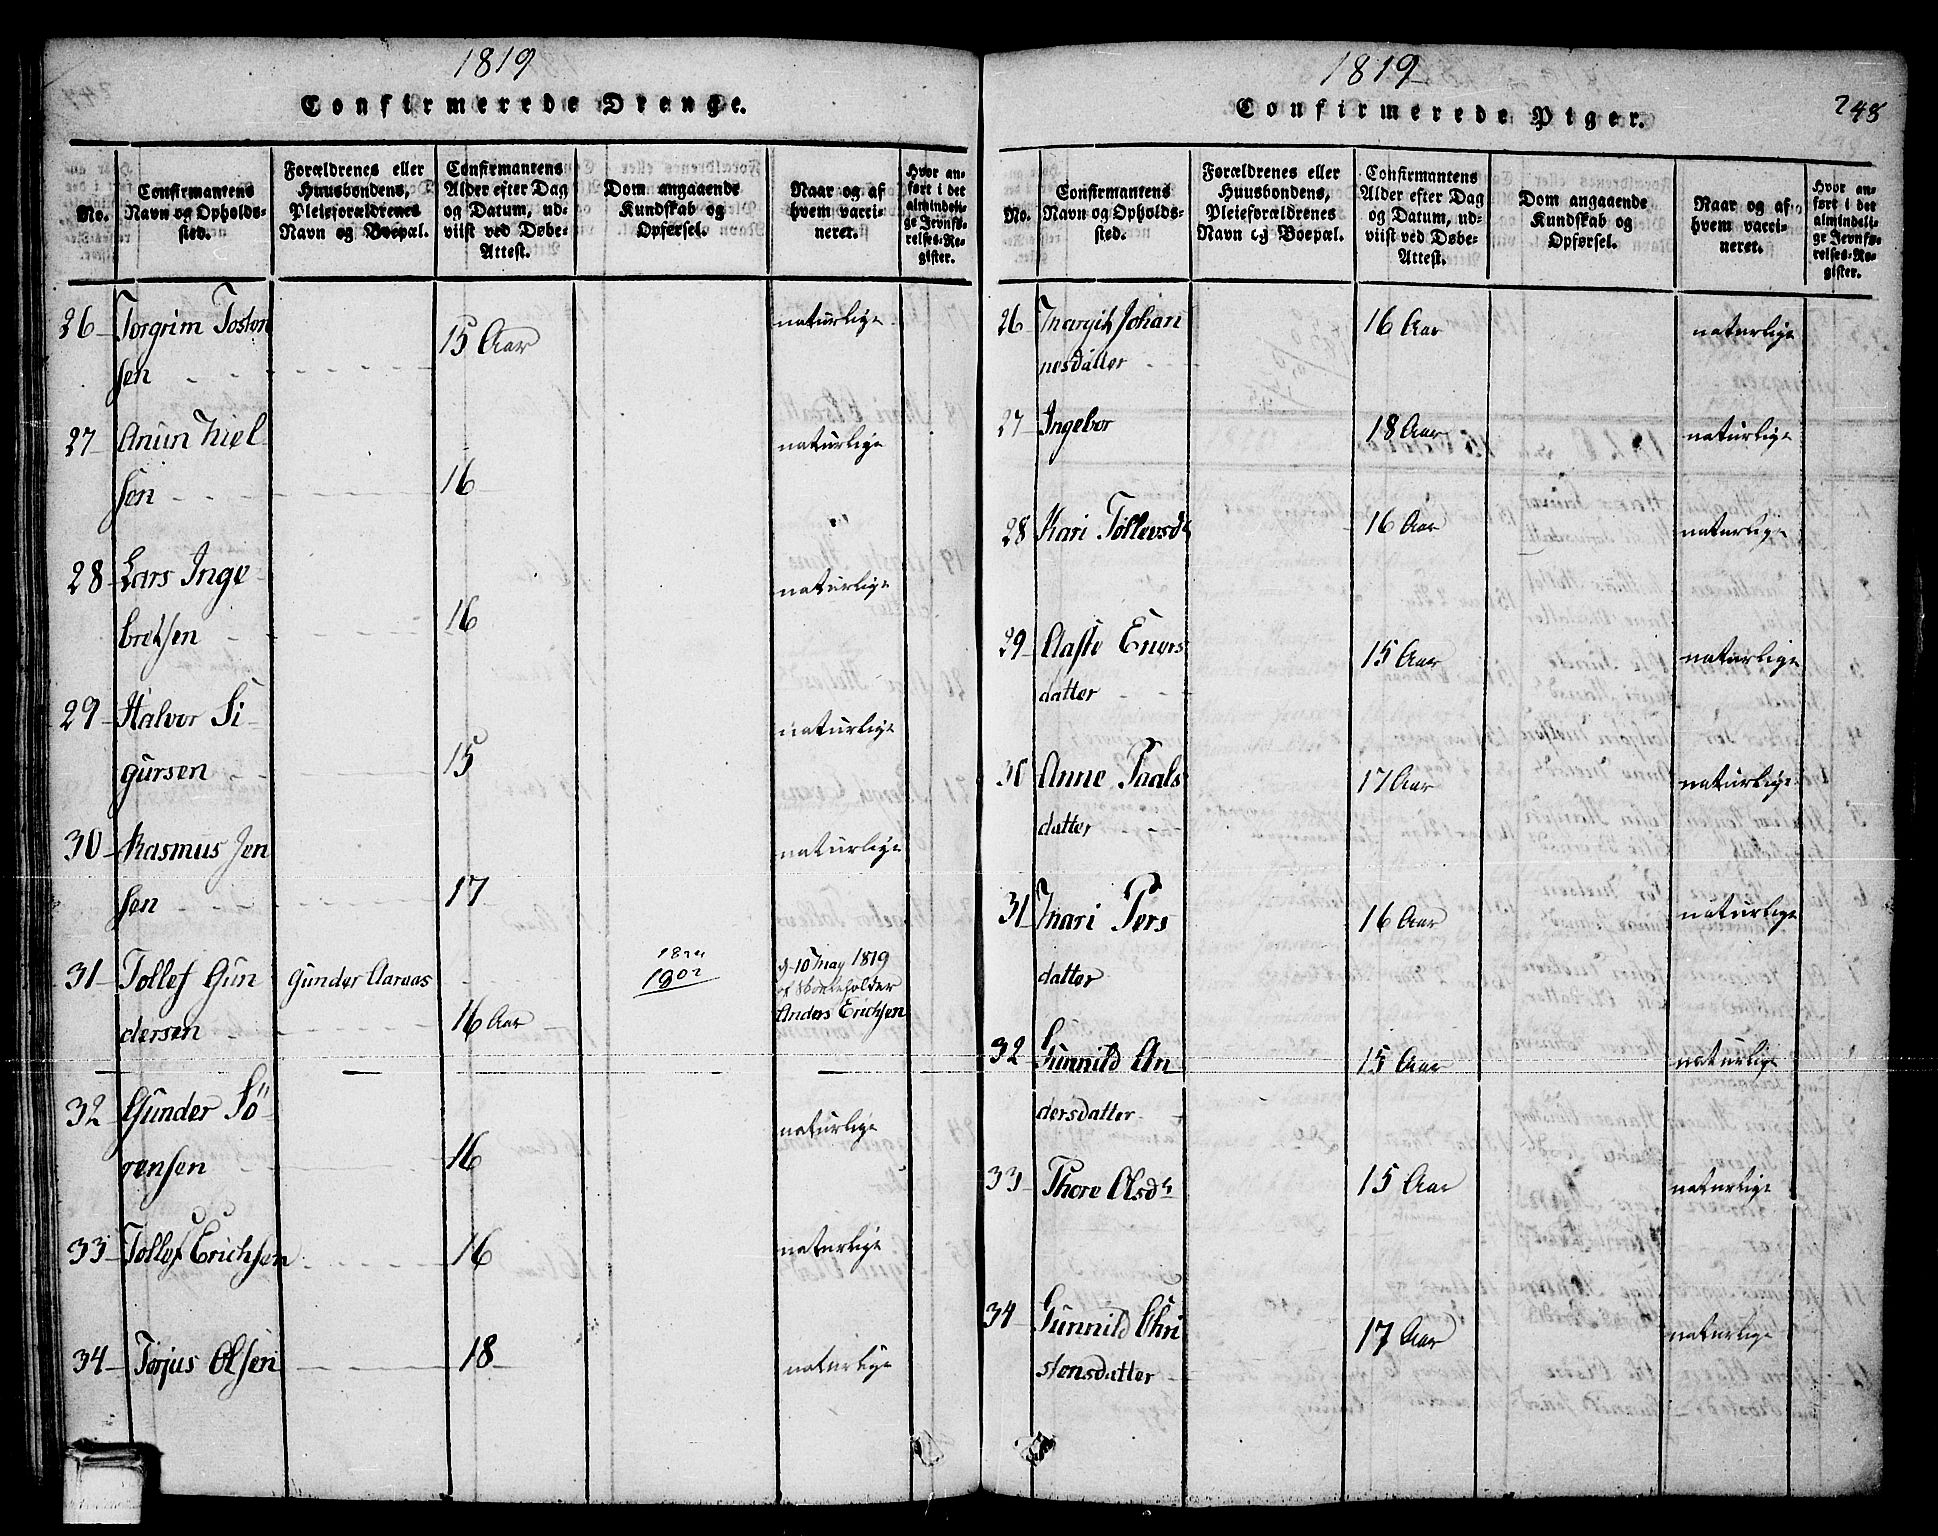 1819
Confirmerede Drenge.
No.
Confirmantens Navn og Opholds-sted.
Forældrenes eller Huusbondens, Pleieforældrenes Navn og Boepæl.
Confirmantens Alder efter Dag og Datum, ud-viist ved Døbe-Attest.
Dom angaaende Kundskab og Opførsel.
Naar og af hvem vacci-neret.
Hvor an-ført i det almindeli-ge Jevnfø-relses-Re-gister.
26 Torgrim Tosten 15 Aar naturlige
sen
27 Anun Niel 16 naturlige
sen
28 Lars Inge 16 naturlige
bretsen
29 Halvor Si 15 naturlige
gursen
30 Rasmus Jen 17 naturlige
sen
31 Tollef Gun Gunder Aaraas 16 Aar d 10 May 1819
dersen af Skoleholder
Anders Erichsen
32 Gunder Sö 16 naturlige
rensen
33 Tollef Erichsen 16 naturlige
34 Torjus Olsen 18 naturlige
1819
Confirmerede Piger.
248
No.
Confirmantens Navn og Opholds-sted.
Forældrenes eller Huusbondens, Pleieforældrenes Navn og Boepæl.
Confirmantens Alder efter Dag og Datum, ud-viist ved Døbe-Attest.
Dom angaaende Kundskab og Opførsel.
Naar og af hvem vacci-neret.
Hvor an-ført i det almindeli-ge Jevnfø-relses-Re-gister.
26 Margit Johan 16 Aar naturlige
nesdatter
27 Ingebor 18 Aar naturlige
28 Kari Tollevsdr 16 Aar naturlige
29 Aaste Eners 15 Aar naturlige
datter
30 Anne Paals 17 Aar naturlige
datter
31 Mari Pers 16 Aar naturlige
datter
32 Gunnild An 15 Aar naturlige
dersdatter
33 Thore Olsdr 15 Aar naturlige
34 Gunnild Chri 17 Aar naturlige
stensdatter